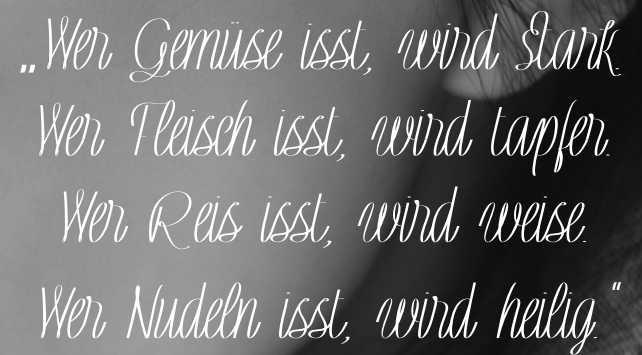 „Wer Gemüse isst, wird Stark.
Wer Fleisch isst, wird tapfer.
Wer Reis isst, wird weise.
Wer Nudeln isst, wird heilig.“